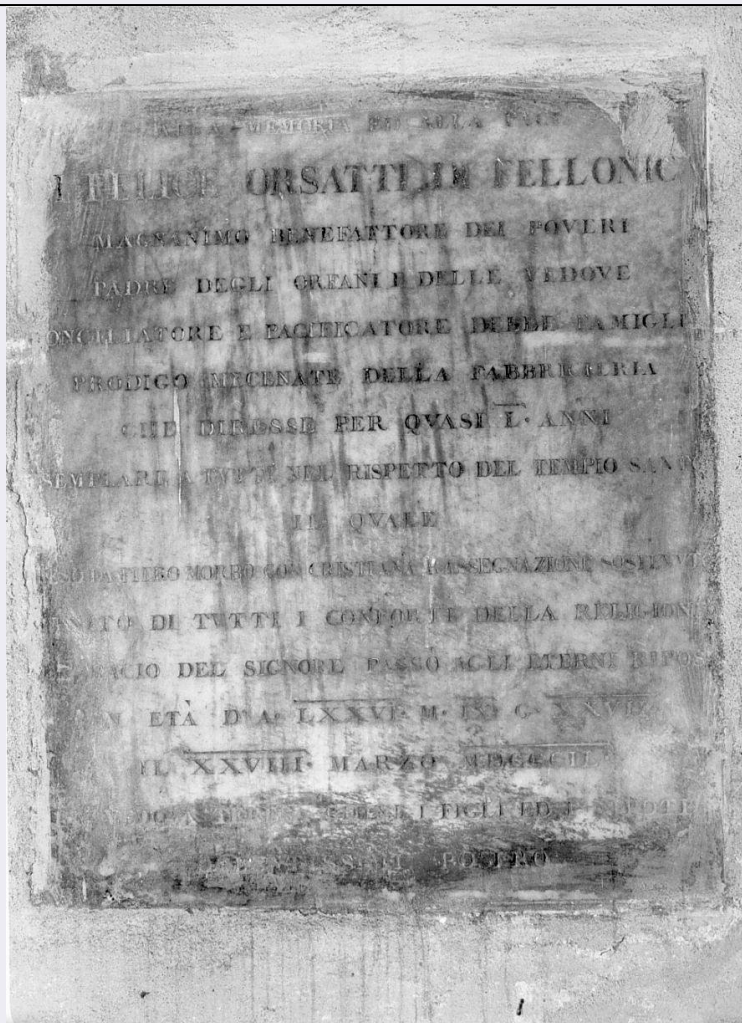 ALLA MEMORIA ED ALLA PACE
FELICE ORSATTI DI FELLONIC
MAGNANIMO BENEFATTORE DEI POVERI
PADRE DEGLI ORFANI E DELLE VEDOVE
ONCILIATORE E PACIFICATORE DELLE FAMIGLI
PRODIGO MECENATE DELLA FABBRICIERIA
CHE DIRESSE PER QVASI L. ANNI
SEMPLARE A TVTTI NEL RISPETTO DEL TEMPIO SANTO
IL QVALE
DA FIERO MORBO CON CRISTIANA RASSEGNAZIONE SOSTENVT
MVNITO DI TVTTI I CONFORTI DELLA RELIGION
BACIO DEL SIGNORE PASSÒ AGLI ETERNI RIPOS
IN ETÀ D' A. LXXVI. M. IX. G.
IL XXVIII. MARZO
I FIGLI ED I NIPOTI
POSERO